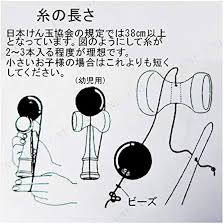 糸の長さ
日本けん玉協会の規定では38cm以上
となっています。図のようにして糸が
2~3本入る程度が理想です。
小さいお子様の場合はこれよりも短く
してください。
(幼児用)
ビーズ